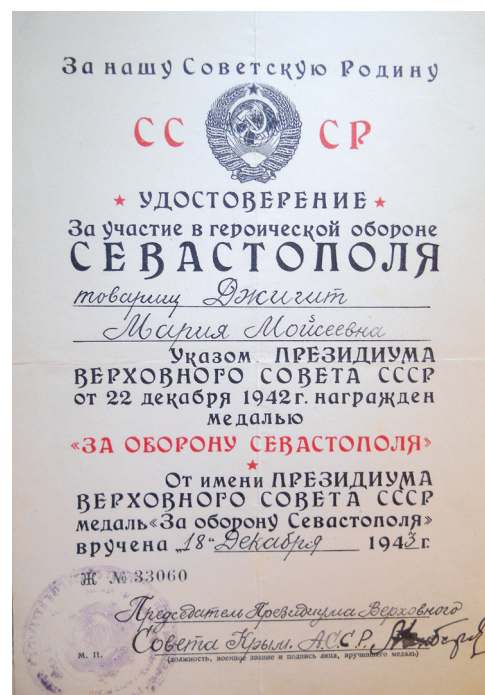 За нашу Советскую Родину
СССР
УДОСТОВЕРЕНИЕ
За участие в героической обороне
СЕВАСТОПОЛЯ
товарищ Джигит
Мария Мойсеевна
Указом ПРЕЗИДИУМА
ВЕРХОВНОГО СОВЕТА СССР
от 22 декабря 1942 г. награжден
медалью
«ЗА ОБОРОНУ СЕВАСТОПОЛЯ»
От имени ПРЕЗИДИУМА
ВЕРХОВНОГО СОВЕТА СССР
медаль «За оборону Севастополя»
вручена „18" Декабря 1943 г.
Ж № 33060
Председатель Президиума Верховного
Совета Крым. АССР.
М. П. (должность, военное звание и подпись лица, вручившего медаль)